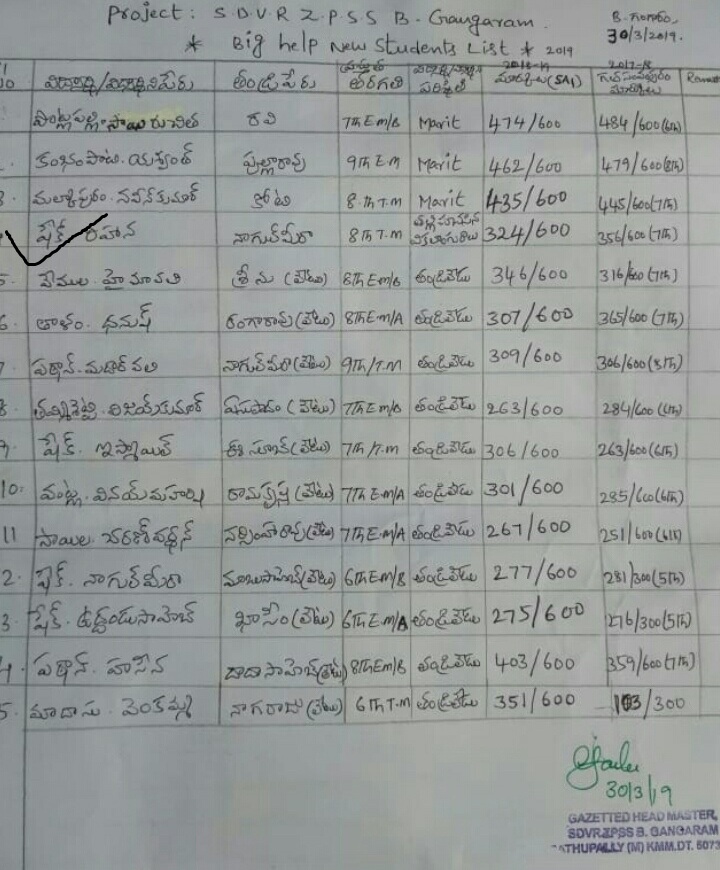 Project: S.D.V.R Z.P.S.S B. Gangaram.
B. గంగారం,
30/3/2019.
* Big help New Students List * 2019
విద్యార్థి/విద్యార్థిని పేరు తండ్రిపేరు ప్రస్తుత తరగతి 2018-19 మార్కులు (SA1) 2017-18 మార్కులు
సాయి రుచిత రవి 7Th E.M/B Marit 474/600 484/600(6th)
కంభంపాటి. యశ్వంత్ పుల్లారావు 9Th E.M Marit 462/600 479/600(8th)
నవీన్ కుమార్ కోటి 8.Th T.M Marit 435/600 445/600(7Th)
షేక్. రిహాన నాగుల్ మీరా 8Th T.M 324/600 356/600(7Th)
5. వేముల. హైమావతి శ్రీను (లేటు) 8Th E.M/B తండ్రిలేడు 346/600 316/600(7Th)
6 తాళం. ధనుష్ రంగారావు (లేటు) 8Th E.M/A తండ్రిలేడు 307/600 365/600(7Th)
7 పఠాన్. మదార్ వలి నాగుల్ మీరా (లేటు) 9Th/T.M తండ్రిలేడు 309/600 306/600(8Th)
8 విజయ్ కుమార్ (లేటు) 7Th E.M/B తండ్రిలేడు 263/600 284/600(6th)
9. షేక్. ఇస్మాయిల్ (లేటు) 7Th/T.M తండ్రిలేడు 306/600 263/600(6Th)
10. వినయ్ మహర్షి రామకృష్ణ (లేటు) 7Th E.M/A తండ్రిలేడు 301/600 285/600(6Th)
11 నర్సింహారావు (లేటు) 7Th E.M/A తండ్రిలేడు 267/600 251/600(6th)
2. షేక్. నాగుల్ మీరా (లేటు) 6Th E.M/B తండ్రిలేడు 277/600 281/300(5Th)
3. షేక్. ఉద్దండుసాహెబ్ ఖాసీం (లేటు) 6Th E.M/A తండ్రిలేడు 275/600 276/300(5Th)
4. పఠాన్. హసీన దాదా సాహెబ్ (లేటు) 8Th E.M/B తండ్రిలేడు 403/600 359/600(7Th)
5. మాదాసు. వెంకమ్మ నాగరాజు (లేటు) 6Th T.M తండ్రిలేడు 351/600 103/300
30/3/19
GAZETTED HEAD MASTER,
SDVRZPSS B. GANGARAM
ATHUPALLY (M) KMM.DT. 5073